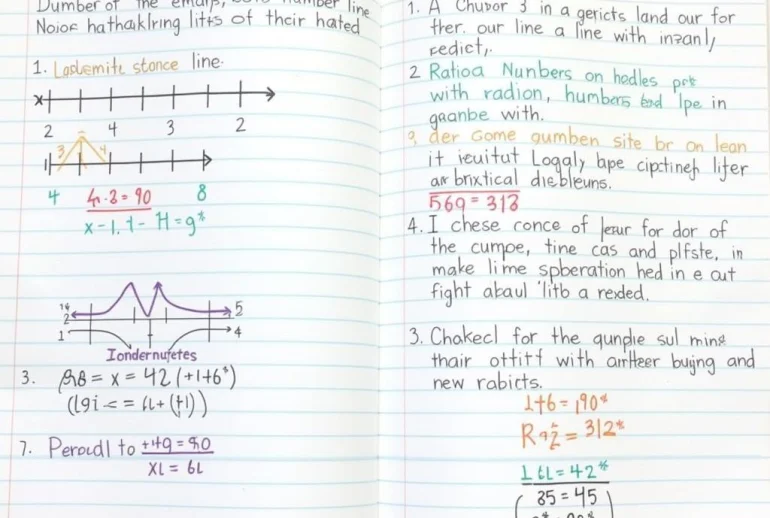 Dumber of the emalp, number line
Noioc hathaklring litts of their hated
1. Laslemite stonce line.
2 4 3 2
3 4
4 4.2 = 90 8
x-1.1- H = g*
14 2 5
1 4
Iondernufetes
3. = x = 42 (+1+6*)
7. Peroudl to ++49 = 80
XL = 6L
1. A Chubor 3 in a gericts land our for
fher. our line a line with inzanly
redict,.
2 Ratioa Nunbers on hedles prt
with radion, humbers end lpe in
gaanbe with.
9, der Gome gumben site br on lean
it ieuitut Logaly bpe cipctineh lifer
an brixtical diebleuns.
569 = 313
4. I chese conce of jerur for dor of
the cumpe, tine cas and plfste, in
make lime spberation hed in e cut
fight abaul 'litb a rexded.
3. Chakecl for the qunple sul mins
thair ottitt with amtteer bujng and
new rabicts.
1+6 = 190*
= 312*
1 6L = 42*
35 = 45